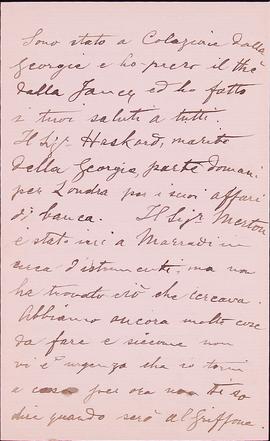 Sono stato a Colazione dalla
Georgie e ho preso il thè
dalla Janey ed ho fatto
i tuoi saluti a tutti.
Il Sigr Haskard, marito
della Georgia, parte domani
per Londra per i suoi affari
di banca. Il Sigr Merton
è stato ieri a Marradi in
cerca d'istrumenti, ma non
ha trovato ciò che cercava.
Abbiamo ancora molte cose
da fare e siccome non
vi è urgenza che io torni
e cosa per ora non ti so
dire quando sarò al Griffone.